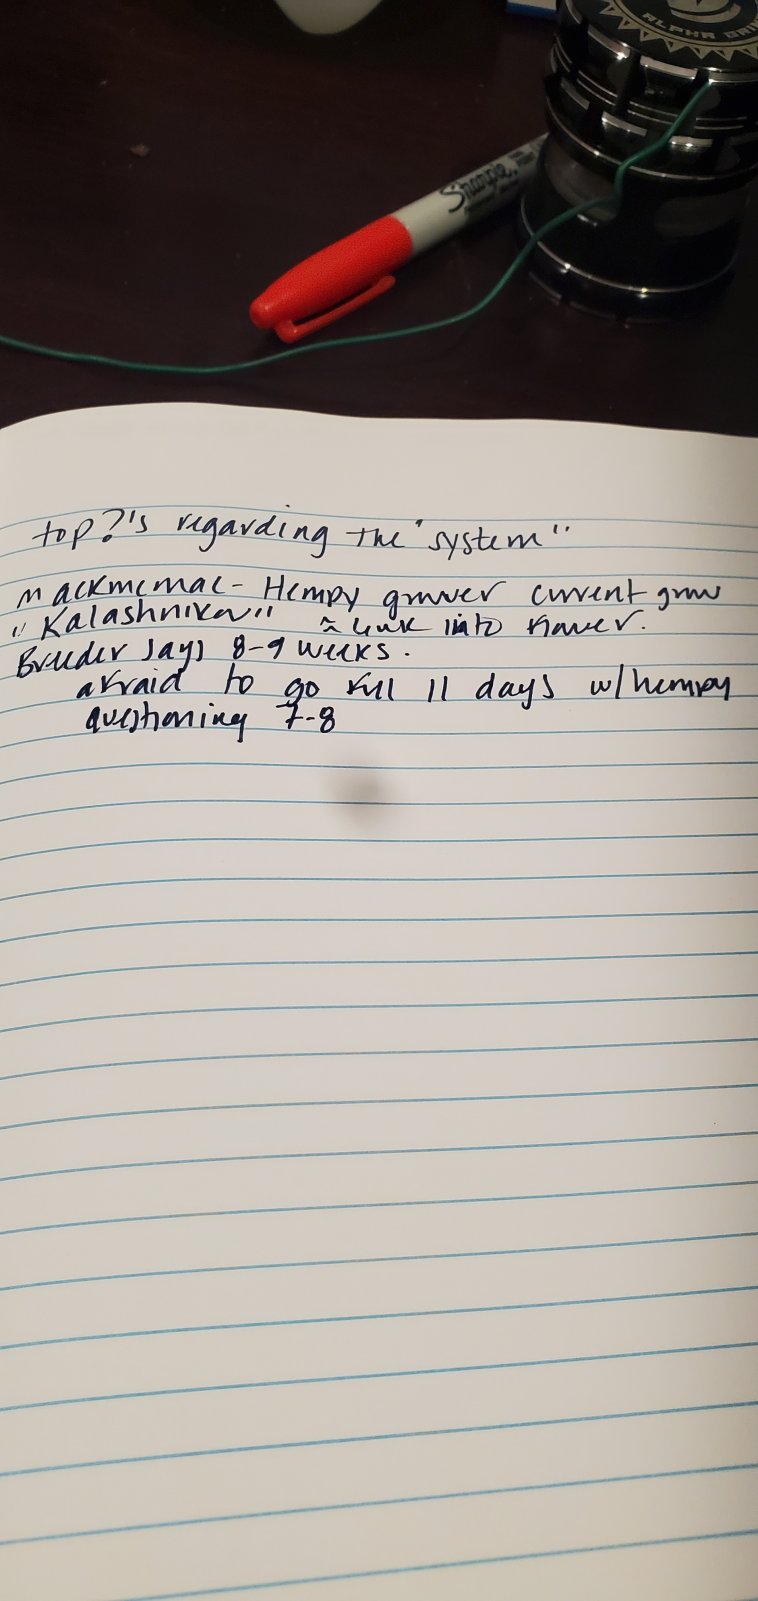 ALPHA GRIN
Sharpie
top ?'s regarding the "system"
mackmcmac - Hempy grower current grow
"Kalashnikov" ≈ week into flower.
Breeder says 8-9 weeks.
afraid to go full 11 days w/ hempy
questioning 7-8